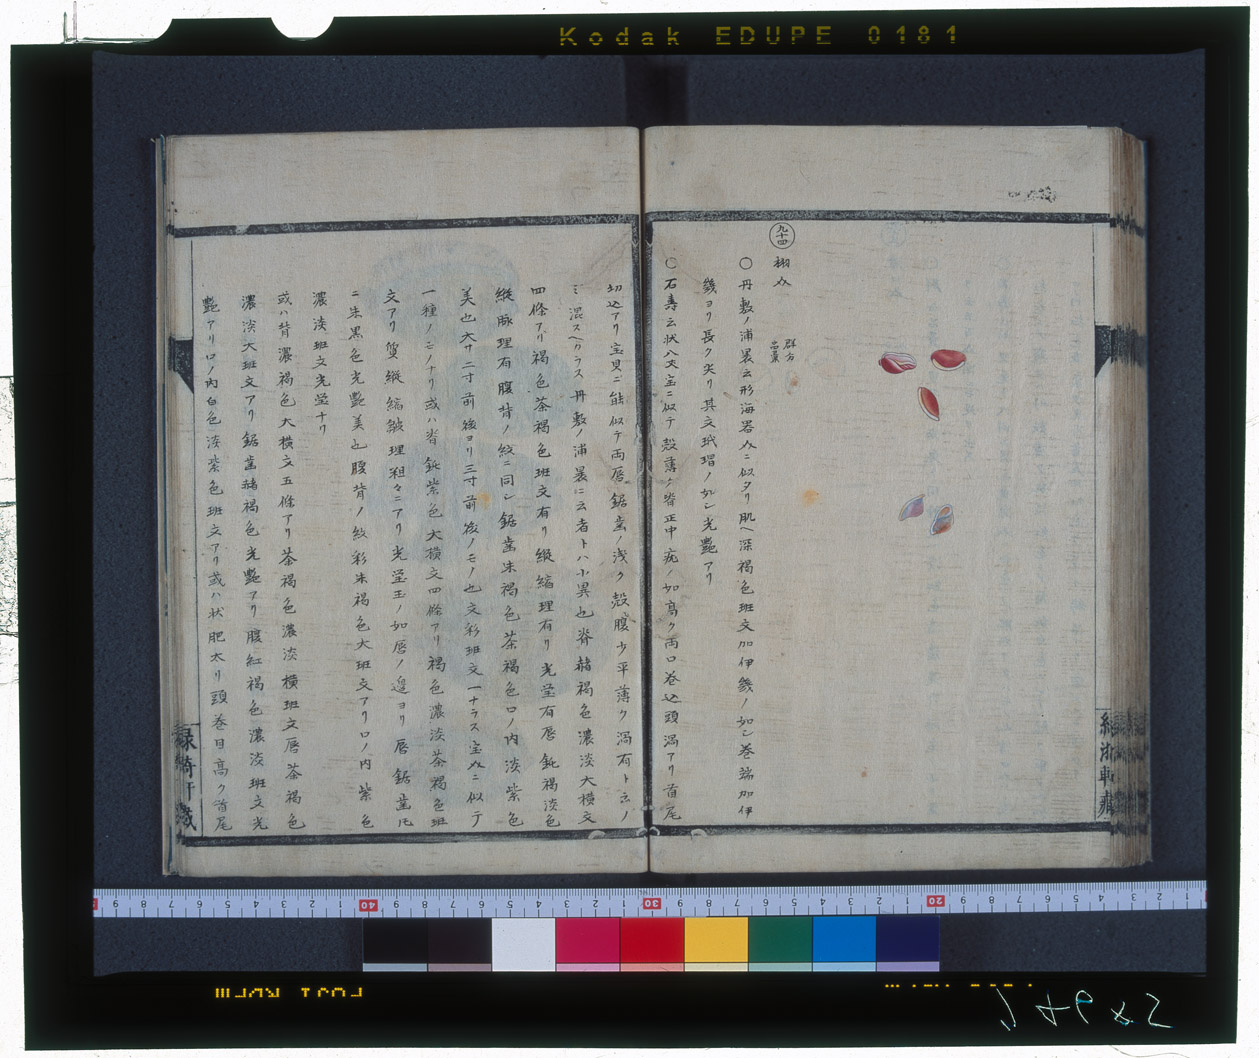 Kodak EDUPE 0181
九十四 栩貝 群方品彙
○丹敷ノ浦裏云形海器貝ニ似タリ肌ヘ深褐色班文加伊幾ノ如シ巻端加伊
幾ヨリ長ク尖リ其文玳瑁ノ如シ光艶アリ
○石壽云状八文宝ニ似テ殻薄ク脊正中疣ノ如高ク両口巻込頭渦アリ首尾
切込アリ宝貝ニ能似テ両唇鋸歯ノ浅ク殻腹少平薄ク渦有ト云ノ
ミ混スヘカラス丹敷ノ浦裏ニ云者トハ小異也脊赭褐色濃淡大横文
四條アリ褐色茶褐色班文有リ縦縮理有リ光堂有唇鈍褐淡色
縦脉理有腹背ノ紋ニ同シ鋸歯朱褐色茶褐色口ノ内淡紫色
美也大サ二寸前後ヨリ三寸前後ノモノ也文彩班文一ナラス宝貝ニ似テ
一種ノモノナリ或ハ脊鈍紫色大横文四條アリ褐色濃淡茶褐色班
文アリ質縦縮皺理粗々ニアリ光瑩玉ノ如唇ノ邉ヨリ唇鋸歯圧
ニ朱黒色光艶美也腹背ノ紋彩朱褐色大班文アリ口ノ内紫色
濃淡班文光瑩ナリ
或ハ背濃褐色大横文五條アリ茶褐色濃淡横班文唇茶褐色
濃淡大班文アリ鋸歯赭褐色光艶アリ腹紅褐色濃淡班文光
艶アリ口ノ内白色淡紫色班文アリ或ハ状肥太リ頭巻目高ク首尾
緑漪軒蔵
40 30 20